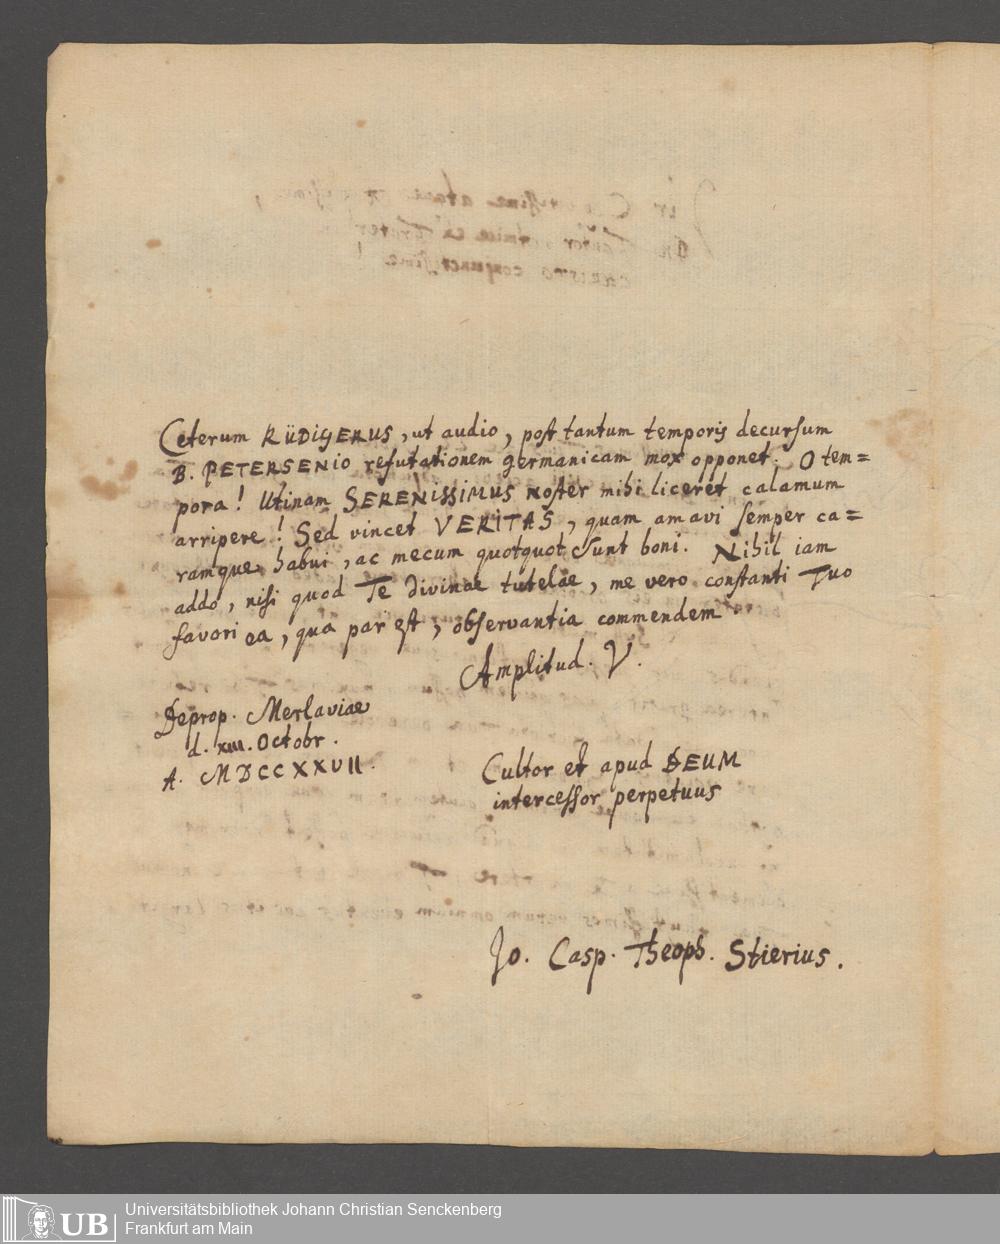 Ceterum RÜDIGERUS, ut audio, post tantum temporis decursum
B. PETERSENIO refutationem germanicam mox opponet. O tem=
pora! Utinam SERENISSIMUS noster mihi liceret calamum
arripere! Sed vincet VERITAS, quam amavi semper ca=
ramque habui, ac mecum quotquot sunt boni. Nihil iam
addo, nisi quod Te divinae tutelae, me vero constanti Tuo
favori ea, qua par est, observantia commendem
Amplitud. V.
Deprop. Merlaviae
d. XIII. Octobr.
A. MDCCXXVII.
Cultor et apud DEUM
intercessor perpetuus
Jo. Casp. Theoph. Stierius.
UB
Universitätsbibliothek Johann Christian Senckenberg
Frankfurt am Main